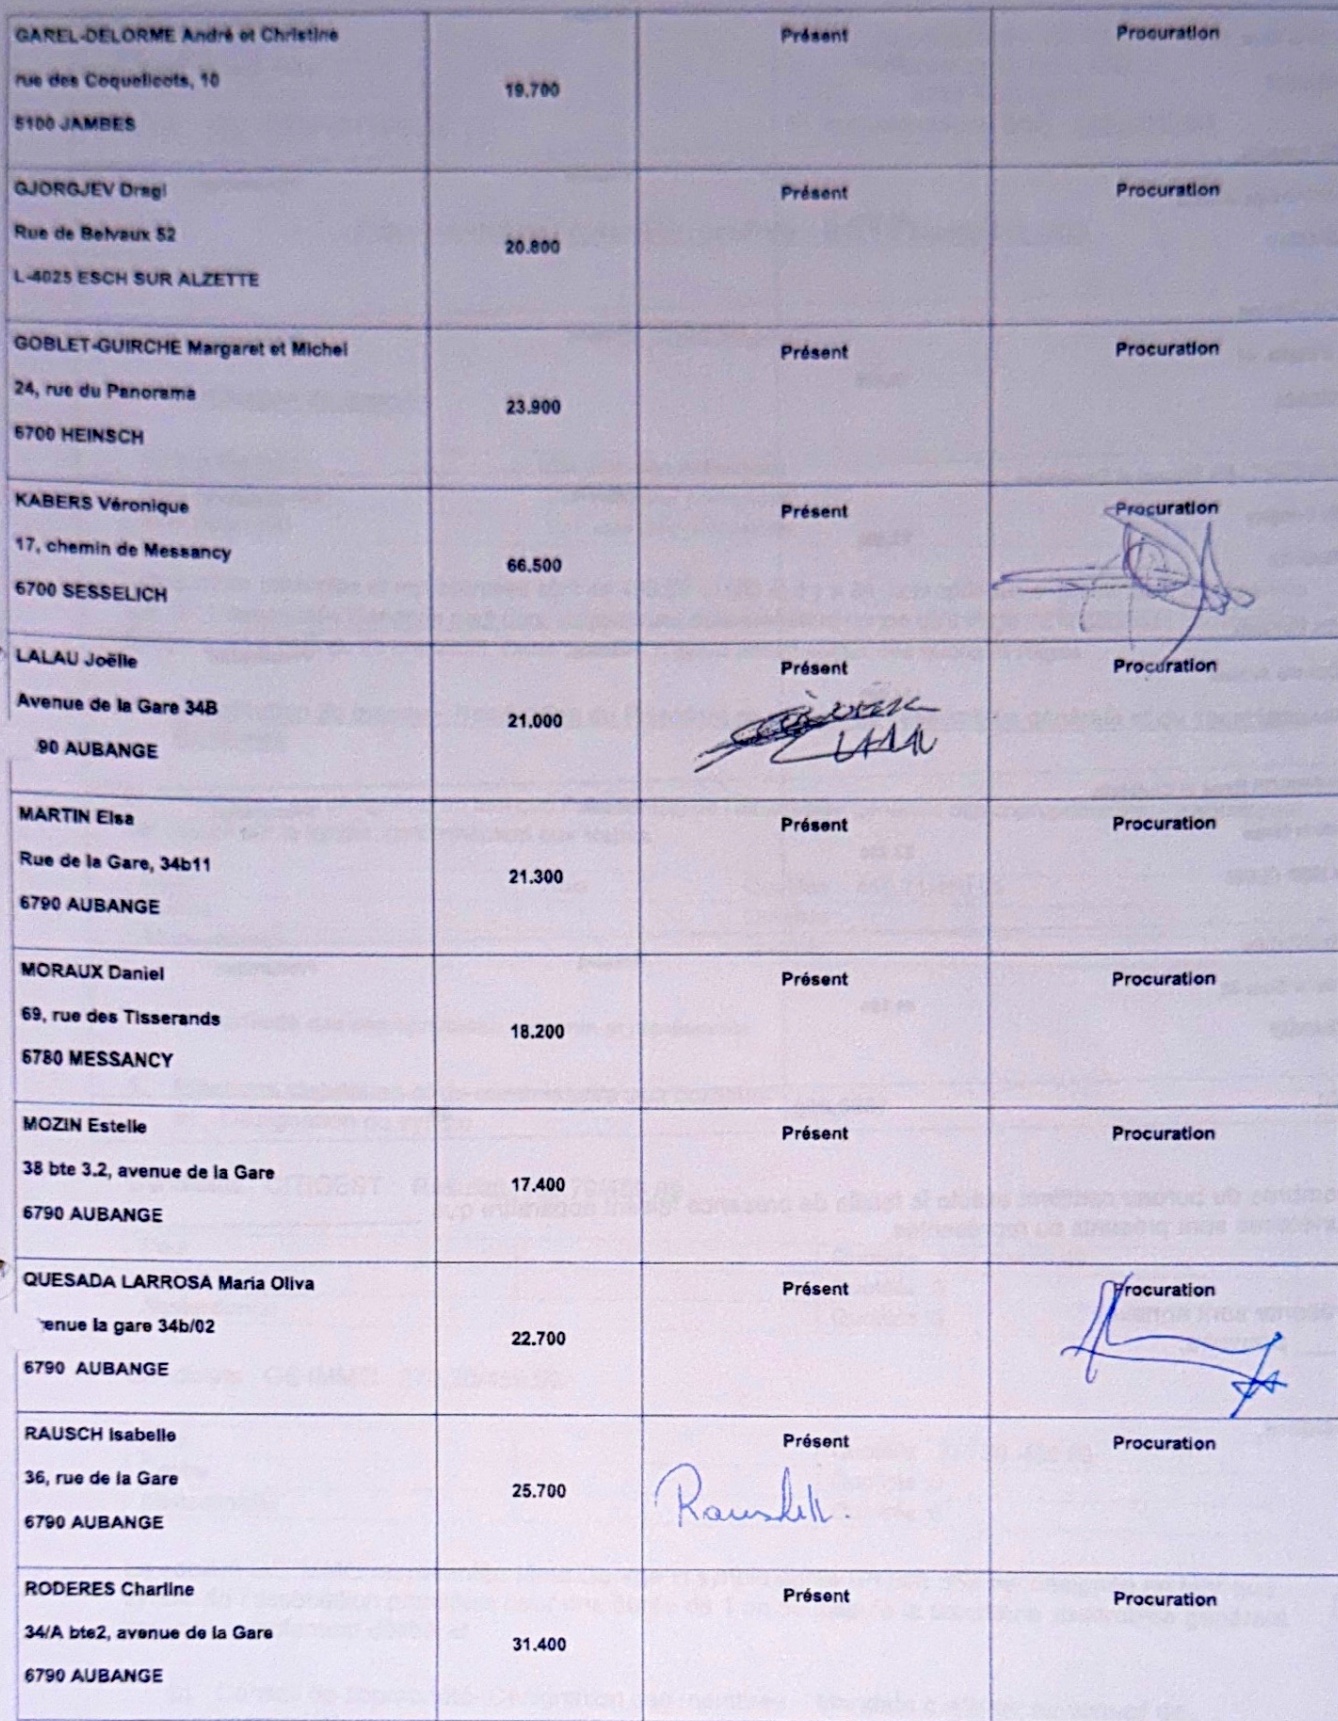 GAREL-DELORME André et Christine
rue des Coquelicots, 10
5100 JAMBES
19.700
Présent
Procuration
GJORGJEV Dragi
Rue de Belvaux 52
L-4025 ESCH SUR ALZETTE
20.800
Présent
Procuration
GOBLET-GUIRCHE Margaret et Michel
24, rue du Panorama
6700 HEINSCH
23.900
Présent
Procuration
KABERS Véronique
17, chemin de Messancy
6700 SESSELICH
66.500
Présent
Procuration
LALAU Joëlle
Avenue de la Gare 34B
90 AUBANGE
21.000
Présent
LALAU
Procuration
MARTIN Elsa
Rue de la Gare, 34b11
6790 AUBANGE
21.300
Présent
Procuration
MORAUX Daniel
69, rue des Tisserands
6780 MESSANCY
18.200
Présent
Procuration
MOZIN Estelle
38 bte 3.2, avenue de la Gare
6790 AUBANGE
17.400
Présent
Procuration
QUESADA LARROSA Maria Oliva
enue la gare 34b/02
6790 AUBANGE
22.700
Présent
Procuration
RAUSCH Isabelle
36, rue de la Gare
6790 AUBANGE
25.700
Présent
Procuration
RODERES Charline
34/A bte2, avenue de la Gare
6790 AUBANGE
31.400
Présent
Procuration